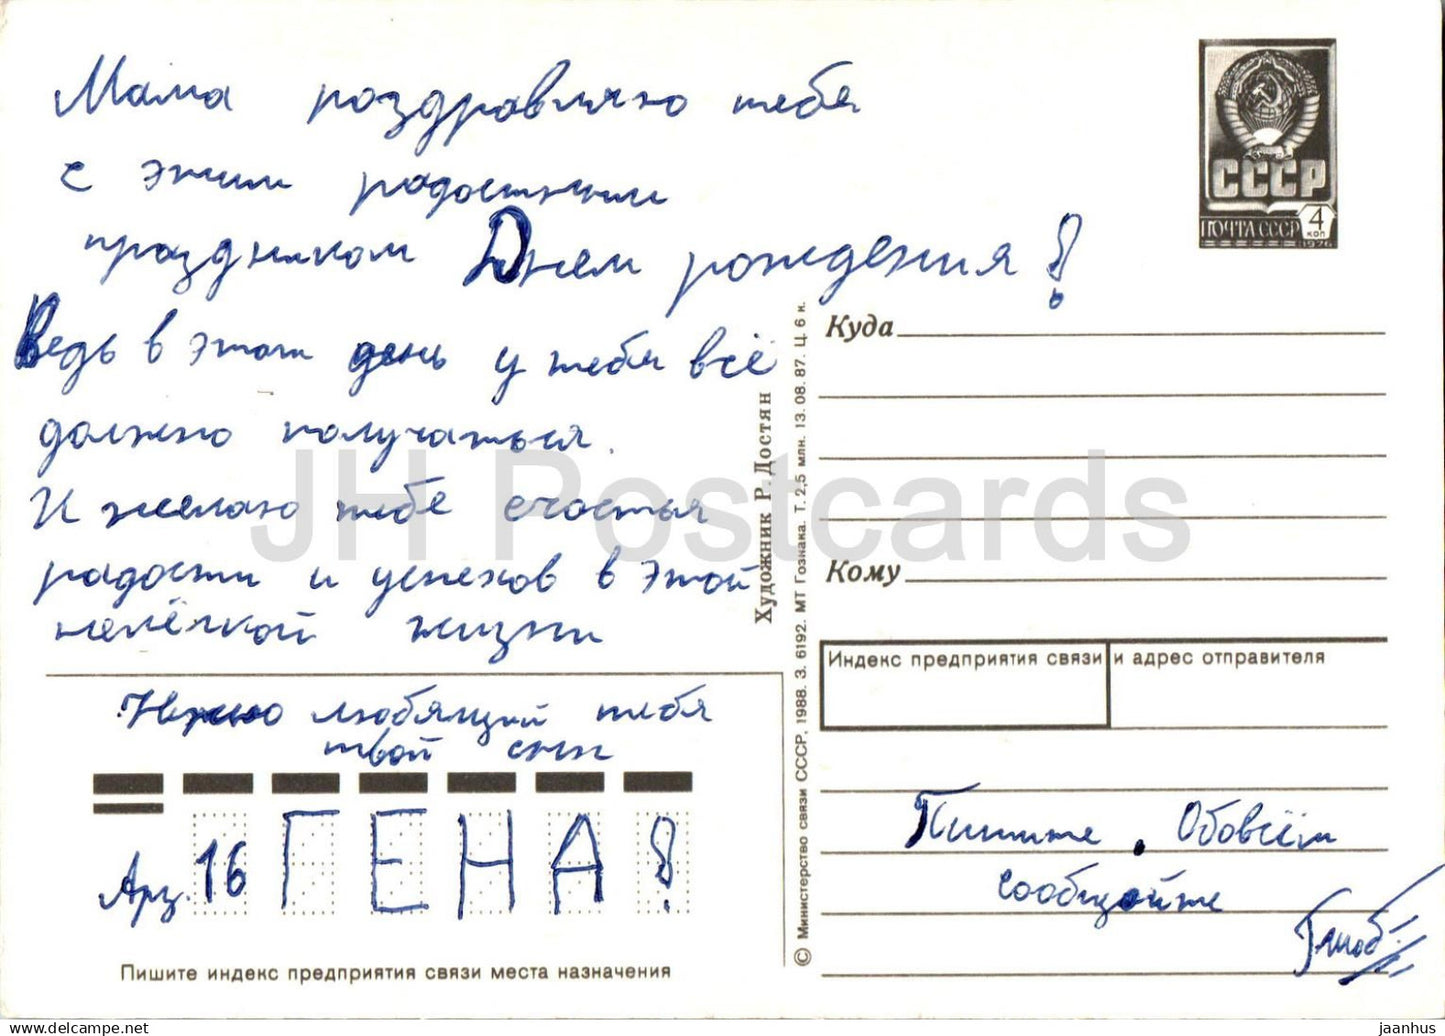 Мама поздравляю тебя
с этим радостным
праздником Днем рождения!
Ведь в этот день у тебя всё
должно получаться.
И желаю тебе счастья
радости и успехов в этой
нелёгкой жизни
Нежно любящий тебя
твой сын
Арз. 16 ГЕНА!
Пишите индекс предприятия связи места назначения
Художник Р. Достян
© Министерство связи СССР, 1988. З. 6192. МТ Гознака. Т. 2,5 млн. 13. 08. 87. Ц. 6 к.
СССР
ПОЧТА СССР 4
коп
1976
Куда
Кому
Индекс предприятия связи и адрес отправителя
Пишите. Обовсём
сообщайте
JH Postcards
www.delcampe.net
jaanhus